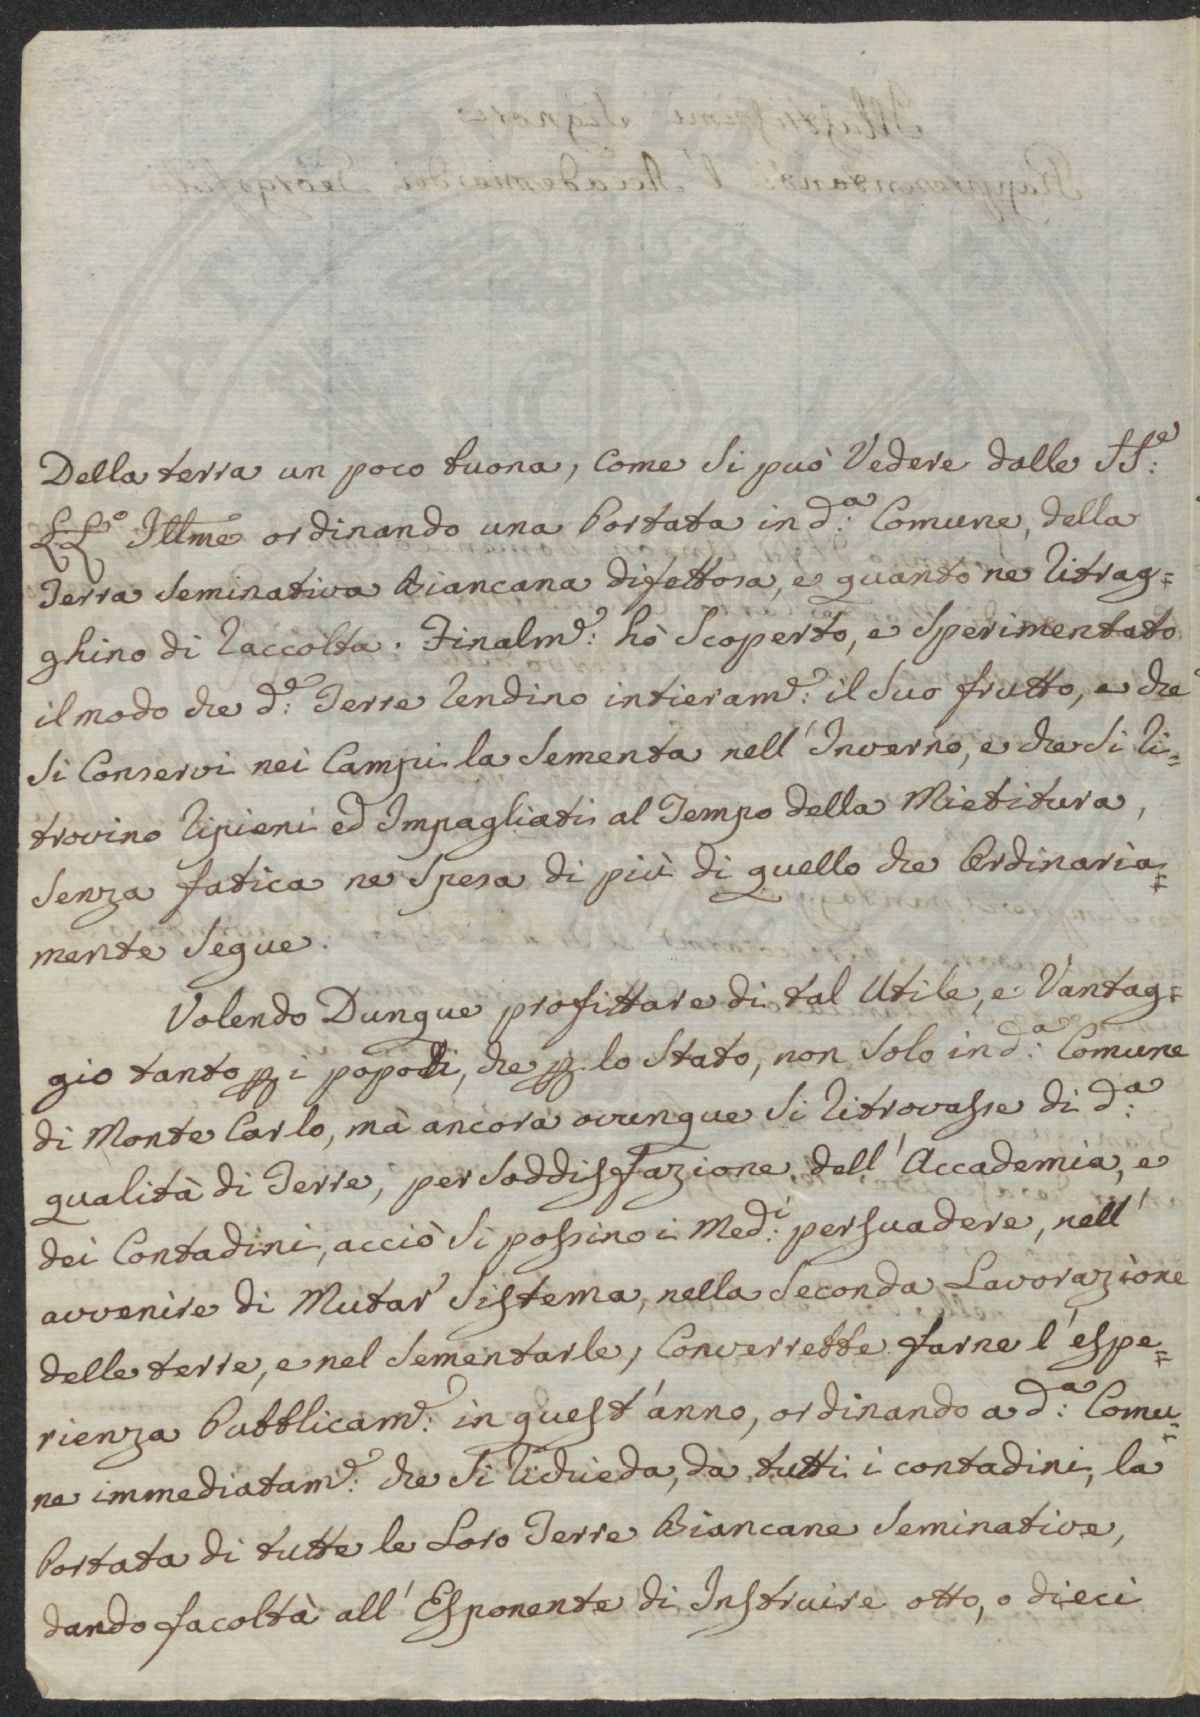 Della terra un poco buona, Come Si può Vedere dalle SS.e:
LL.e Illme ordinando una Portata in d.a: Comune, della
Terra Seminativa Biancana difettosa, e quanto ne Ritrag=
ghino di Raccolta. Finalm.e: hò Scoperto, e Sperimentato
il modo che d.e: Terre Rendino intieram.e: il Suo frutto, e che
Si Conservi nei Campi la Sementa nell'Inverno, e che Si Ri=
trovino Ripieni ed Impagliati al Tempo della Mietitura,
Senza fatica ne Spesa di più di quello che Ordinaria=
mente Segue.
Volendo Dunque profittare di tal Utile, e Vantag=
gio tanto p i popoli, che p lo Stato, non Solo in d.a: Comune
di Monte Carlo, mà ancora ovunque Si Ritrovasse di d.a:
qualità di Terre, per Soddisfazione dell'Accademia, e
dei Contadini, acciò Si possino i Med.i: persuadere, nell'
avvenire di Mutar Sistema, nella Seconda Lavorazione
delle terre, e nel Sementarle, Converrebbe farne l'espe=
rienza Pubblicam.e: in quest'anno, ordinando a d.a: Comu=
ne immediatam.e: che Si Richieda, da tutti i contadini, la
Portata di tutte le Loro Terre Biancane Seminative,
dando facoltà all'Esponente di Instruire otto, o dieci